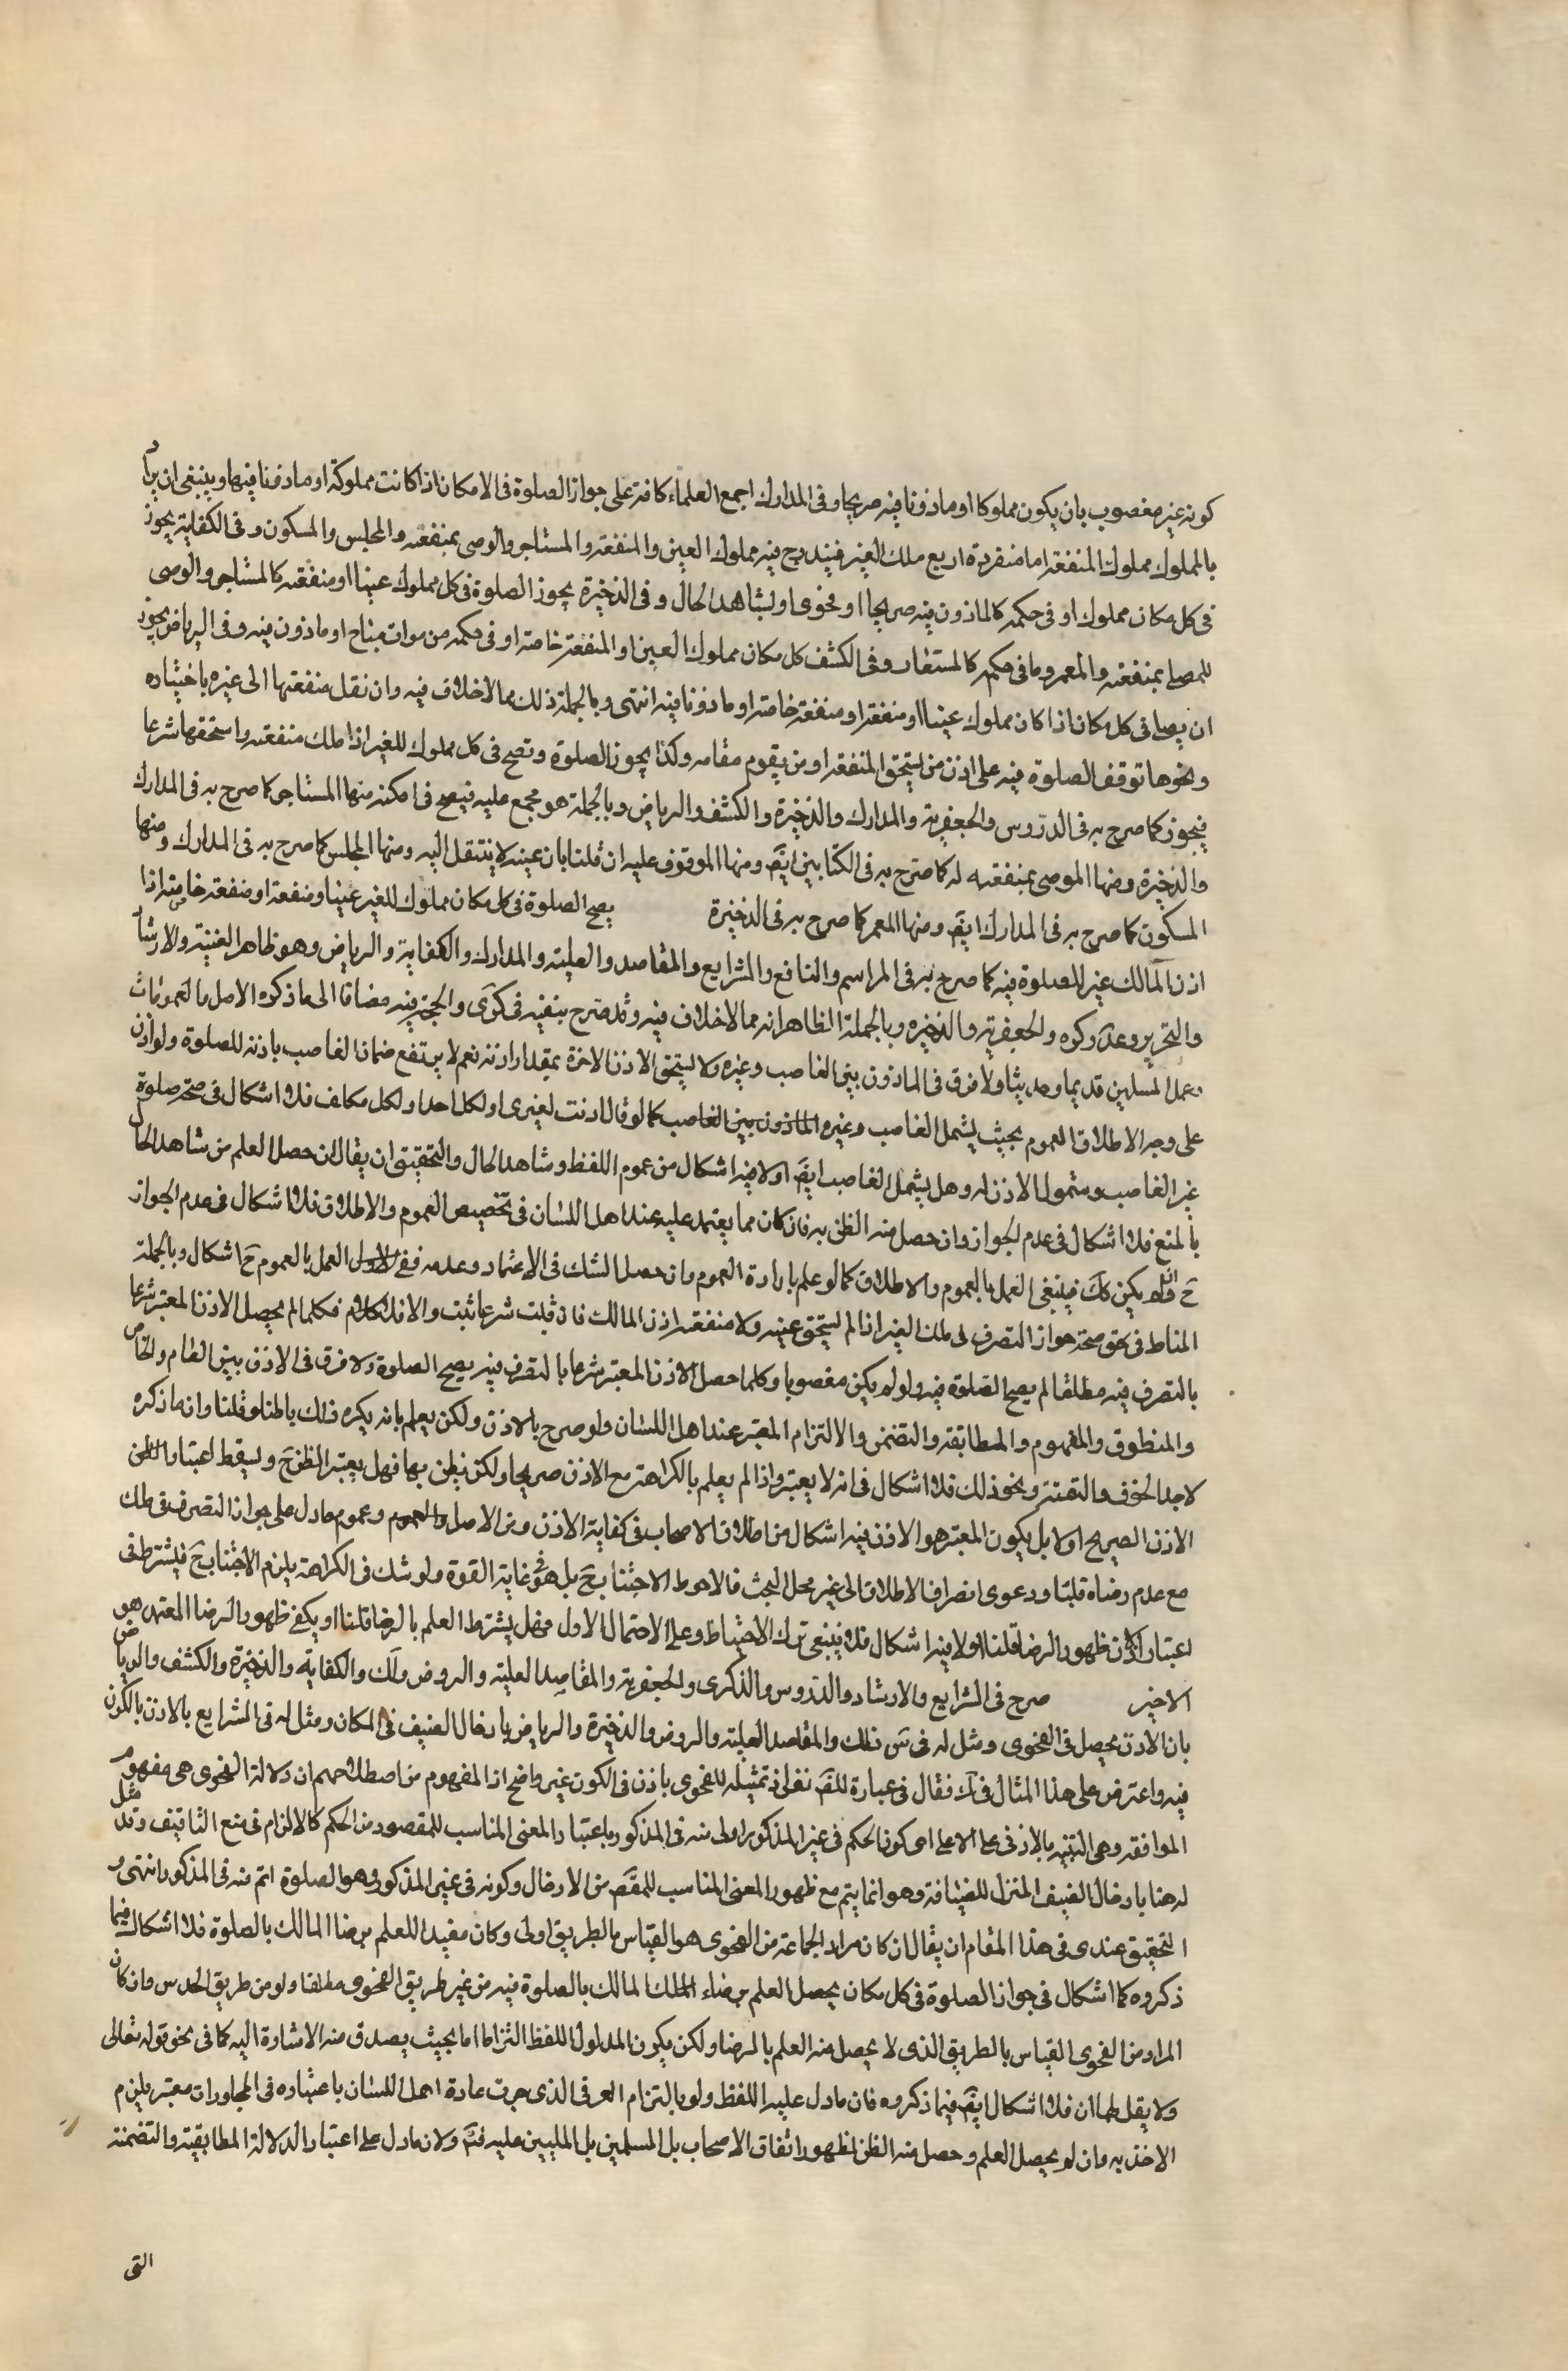 كونه غير مغصوب بان يكون مملوكا او ماذونا فيه صريحا وفى المدارك اجمع العلماء كافة على جواز الصلوة فى الامكان اذا كانت مملوكة او ماذونا فيها وينبغى ان يراد
بالمملوك مملوك المنفعة اما منفردة او مع ملك العين فيندرج فيه مملوك العين والمنفعة والمستاجر والوصى بمنفعته والمحبس والمسكون وفى الكفاية يجوز
فى كل مكان مملوك او فى حكمه كالماذون فيه صريحا او فحوى او بشاهد الحال وفى الذخيرة يجوز الصلوة فى كل مملوك عينا او منفعة كالمستاجر والوصى
للمصلى بمنفعته والمعمر وما فى حكمه كالمستعار وفى الكشف كل مكان مملوك العين او المنفعة خاصة او فى حكمه من موات مباح او ماذون فيه وفى الرياض يجوز
ان يصلى فى كل مكان اذا كان مملوك عينا او منفعة او منفعة خاصة او ماذونا فيه انتهى وبالجملة ذلك مما لاخلاف فيه وان نقل منفعتها الى غيره باختياره
ونحوها توقف الصلوة فيه على اذن من يستحق المنفعة او من يقوم مقامه وكذا يجوز الصلوة وتصح فى كل مملوك للغير اذا ملك منفعته واستحقها شرعا
فيجوز كما صرح به فى الدروس والجعفرية والمدارك والذخيرة والكشف والرياض وبالجملة هو مجمع عليه فيصح فى امكنة منها المستاجر كما صرح به فى المدارك
والذخيرة ومنها الموصى بمنفعته له كما صرح به فى الكتابين ايضَ ومنها الموقوف عليه ان قلنا بان عينه لا ينتقل اليه ومنها المحبس كما صرح به فى المدارك ومنها
المسكون كما صرح به فى المدارك ايضَ ومنها المعمر كما صرح به فى الذخيرة يصح الصلوة فى كل مكان مملوك للغير عينا ومنفعة او منفعة خاصة اذا
اذن المالك غير للصلوة فيه كما صرح به فى المراسم والنافع والشرايع والمقاصد والعلية والمدارك والكفاية والرياض وهو ظاهر الغنية والارشاد
والتحرير وعد وكره والجعفرية والذخيره وبالجملة الظاهر انه مما لاخلاف فيه وقد صرح بنفيه فى كرى والحجة فيه مضافا الى ما ذكره الاصل والعمومات
وعمل المسلمين قديما وحديثا ولا فرق فى الماذون بين الغاصب وغيره ولا يستحق الاذن الاخرة بمقدار اذنه نعم لا يرتفع ضمان الغاصب باذنه للصلوة ولو اذن
على وجه الاطلاق العموم بحيث يشمل الغاصب وغيره الماذون بين الغاصب كما لو قال اذنت لغيرى او لكل احد او لكل مكلف فلا اشكال فى صحة صلوة
غير الغاصب وشمول الاذن له وهل يشمل الغاصب ايضَ اولا فيه اشكال من عموم اللفظ وشاهد الحال والتحقيق ان يقال ان حصل العلم من شاهد الحال
بالمنع فلا اشكال فى عدم الجواز وان حصل منه الظن به فان كان مما يعتمد عليه عند اهل اللسان فى تخصيص العموم والاطلاق فلا اشكال فى عدم الجواز
حَ وان لم يكن كَكَ فينبغى العمل بالعموم والاطلاق كما لو علم بارادة العموم وان حصل الشك فى الاعتماد وعدمه ففى الاول العمل بالعموم حَ اشكال وبالجملة
المناط فى حق صحة جواز التصرف فى ملك الغير اذا لم يستحق عينه ولا منفعته اذن المالك فان قبلت شرعا ثبت والا فلا كلام فكلما لم يحصل الاذن المعتبر شرعا
بالتصرف فيه مطلقا لم يصح الصلوة فيه ولو لم يكن مغصوبا وكلما حصل الاذن المعتبر شرعا بالتصرف فيه يصح الصلوة ولا فرق فى الاذن بين العام والخاص
والمنطوق والمفهوم والمطابقة والتضمن والالتزام المعتبر عند اهل اللسان ولو صرح بالاذن ولكن يعلم بانه يكره ذلك باطنا وقلنا وانما ذكره
لاجل الخوف والتقية ونحو ذلك فلا اشكال فى انه لا يعتبر واذا لم يعلم بالكراهة مع الاذن صريحا ولكن يظن بها فهل يعتبر الظن حَ ويسقط اعتبار الظن
الاذن الصريح اولا بل يكون المعتبر هو الاذن فيه اشكال من اطلاق الاصحاب فى كفاية الاذن ومن الاصل والعموم وعموم ما دل على جواز التصرف فى ملك
مع عدم رضاه قلبا ودعوى انصراف الاطلاق الى غير محل البحث فالاحوط الاجتناب حَ بل هو فى غاية القوة ولو شك فى الكراهة يلزم الاجتناب حَ فيشترط فى
اعتبار الاذن ظهور الرضا قلنا اولا فيه اشكال فلا ينبغى ترك الاحتياط وعلى الاحتمال الاول فهل يشترط العلم بالرضا قلنا او يكفى ظهور الرضا المعتمد هو
الاخير صرح فى الشرايع والارشاد والدروس والذكرى والجعفرية والمقاصد العلية والروض ولك والكفاية والذخيرة والكشف والرياض
بان الاذن يحصل فى الفحوى ومثل له فى سَ ذلك والمقاصد العلية والروض والذخيرة والرياض بادخال الضيف فى المكان ومثل له فى الشرايع بالاذن بالكون
فيه واعترض على هذا المثال فى لك فقال فى عبارة للقَ نغلى ذ تمثيله للفحوى باذن فى الكون غير واضح اذ المفهوم من اصطلاحهم ان دلالة الفحوى هى مفهوم
الموافقة وهى التنبيه بالادنى على الاعلى اى كون الحكم فى غير المذكور اولى منه فى المذكور باعتبار المعنى المناسب للمقصود من الحكم كالالزام فى منع التافيف وقد مثل
له هنا بادخال الضيف المنزل للضيافة وهو انما يتم مع ظهور المعنى المناسب للمقصَ من الادخال وكونه فى غير المذكور وهو الصلوة اتم منه فى المذكور انتهى و
التحقيق عندى فى هذا المقام ان يقال ان كان مراد الجماعة من الفحوى هو القياس بالطريق اولى وكان مفيدا للعلم برضا المالك بالصلوة فلا اشكال فيما
ذكروه كما اشكال فى جواز الصلوة فى كل مكان يحصل العلم برضاء الملك المالك بالصلوة فيه من غير طريق الفحوى مطلقا ولو من طريق الحدس وان كان
المراد من الفحوى القياس بالطريق الذى لا يحصل منه العلم بالرضا ولكن يكون المدلول اللفظ التزاما اما بحيث يصدق منه الاشارة اليه كما فى نحو قوله تعالى
ولا يقل لهما ان فلا اشكال ايضَ فيما ذكروه فان ما دل عليه اللفظ ولو بالتزام العرفى الذى جرت عادة اهل اللسان باعتباره فى المحاورات معتبر يلزم
الاخذ به وان لو يحصل العلم وحصل منه الظن لظهور اتفاق الاصحاب بل المسلمين بل المليين عليه فتَ ولان ما دل على اعتبار الدلالة المطابقية والتضمنية
التى